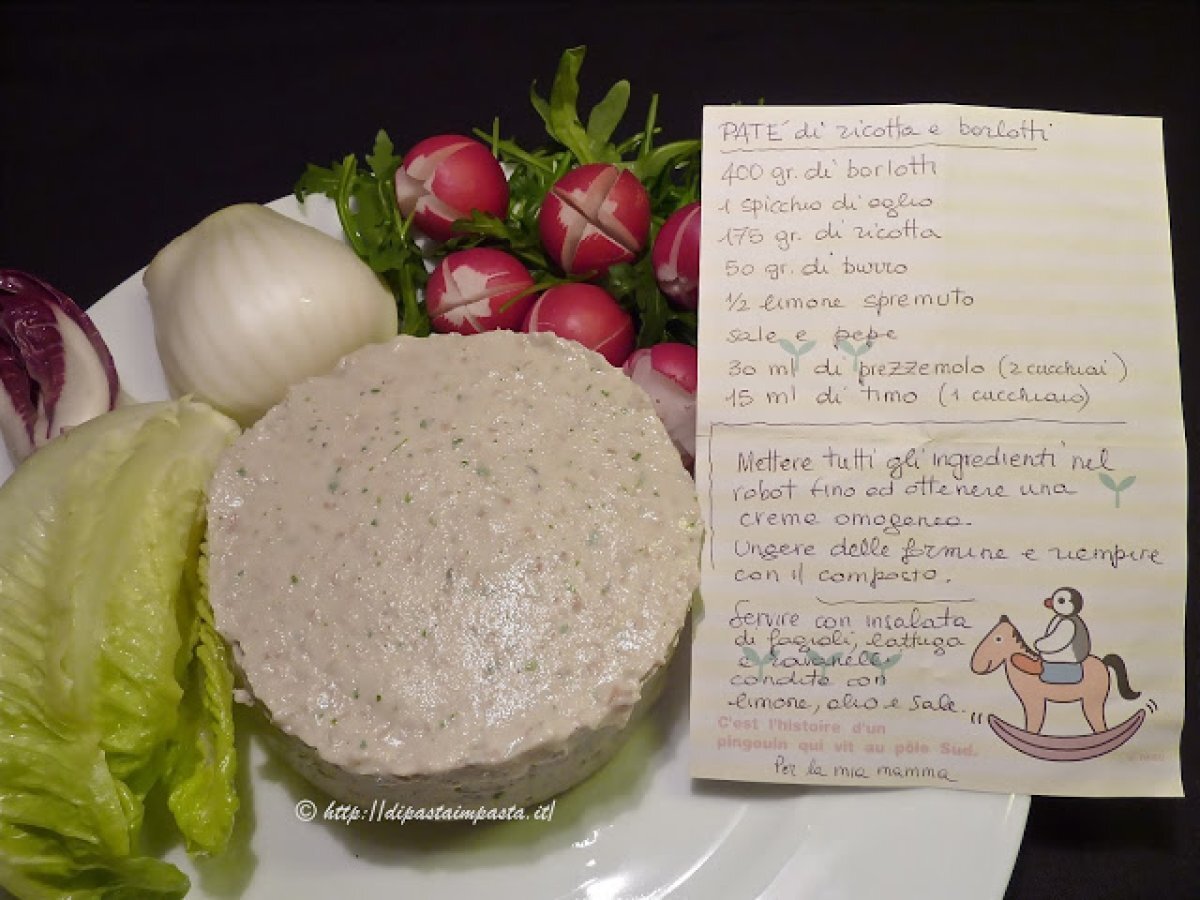 PATE' di ricotta e borlotti
400 gr. di borlotti
1 spicchio di aglio
175 gr. di ricotta
50 gr. di burro
1/2 limone spremuto
sale e pepe
30 ml di prezzemolo (2 cucchiai)
15 ml di timo (1 cucchiaio)
Mettere tutti gli ingredienti nel
robot fino ad ottenere una
crema omogenea.
Ungere delle formine e riempire
con il composto.
Servire con insalata
di fagioli, lattuga
e ravanelli
condita con
limone, olio e sale.
C'est l'histoire d'un
pingouin qui vit au pôle Sud.
Per la mia mamma
© http://dipastaimpasta.it/